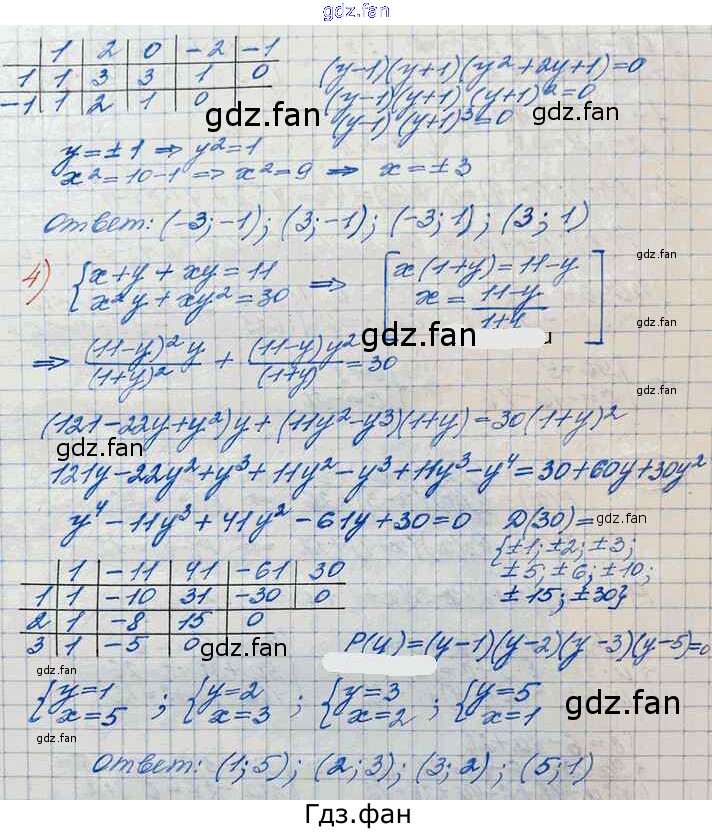 gdz.fan
1 2 0 -2 -1
1 1 3 3 1 0
-1 1 2 1 0
(y-1)(y+1)(y²+2y+1)=0
(y-1)(y+1)(y+1)²=0
(y-1)(y+1)³=0
gdz.fan
gdz.fan
y=±1 ⇒ y²=1
x²=10-1 ⇒ x²=9 ⇒ x=±3
Ответ: (-3;-1); (3;-1); (-3;1); (3;1)
gdz.fan
4) {x+y+xy=11
x²y+xy²=30 ⇒ [x(1+y)=11-y
x=(11-y)/(1+y)]
gdz.fan
gdz.fan
⇒ (11-y)²y/(1+y)² + (11-y)y²/(1+y) =30
(121-22y+y²)y+(11y²-y3)(1+y)=30(1+y)²
gdz.fan
121y-22y²+y³+11y²-y³+11y³-y⁴=30+60y+30y²
y⁴-11y³+41y²-61y+30=0
D(30)=
{±1; ±2; ±3;
±5; ±6; ±10;
±15; ±30}
gdz.fan
1 -11 41 -61 30
1 1 -10 31 -30 0
2 1 -8 15 0
3 1 -5 0
P(y)=(y-1)(y-2)(y-3)(y-5)=0
gdz.fan
gdz.fan
{y=1
x=5 ; {y=2
x=3 ; {y=3
x=2 ; {y=5
x=1
gdz.fan
gdz.fan
Ответ: (1;5); (2;3); (3;2); (5;1)
gdz.fan
Гдз.фан